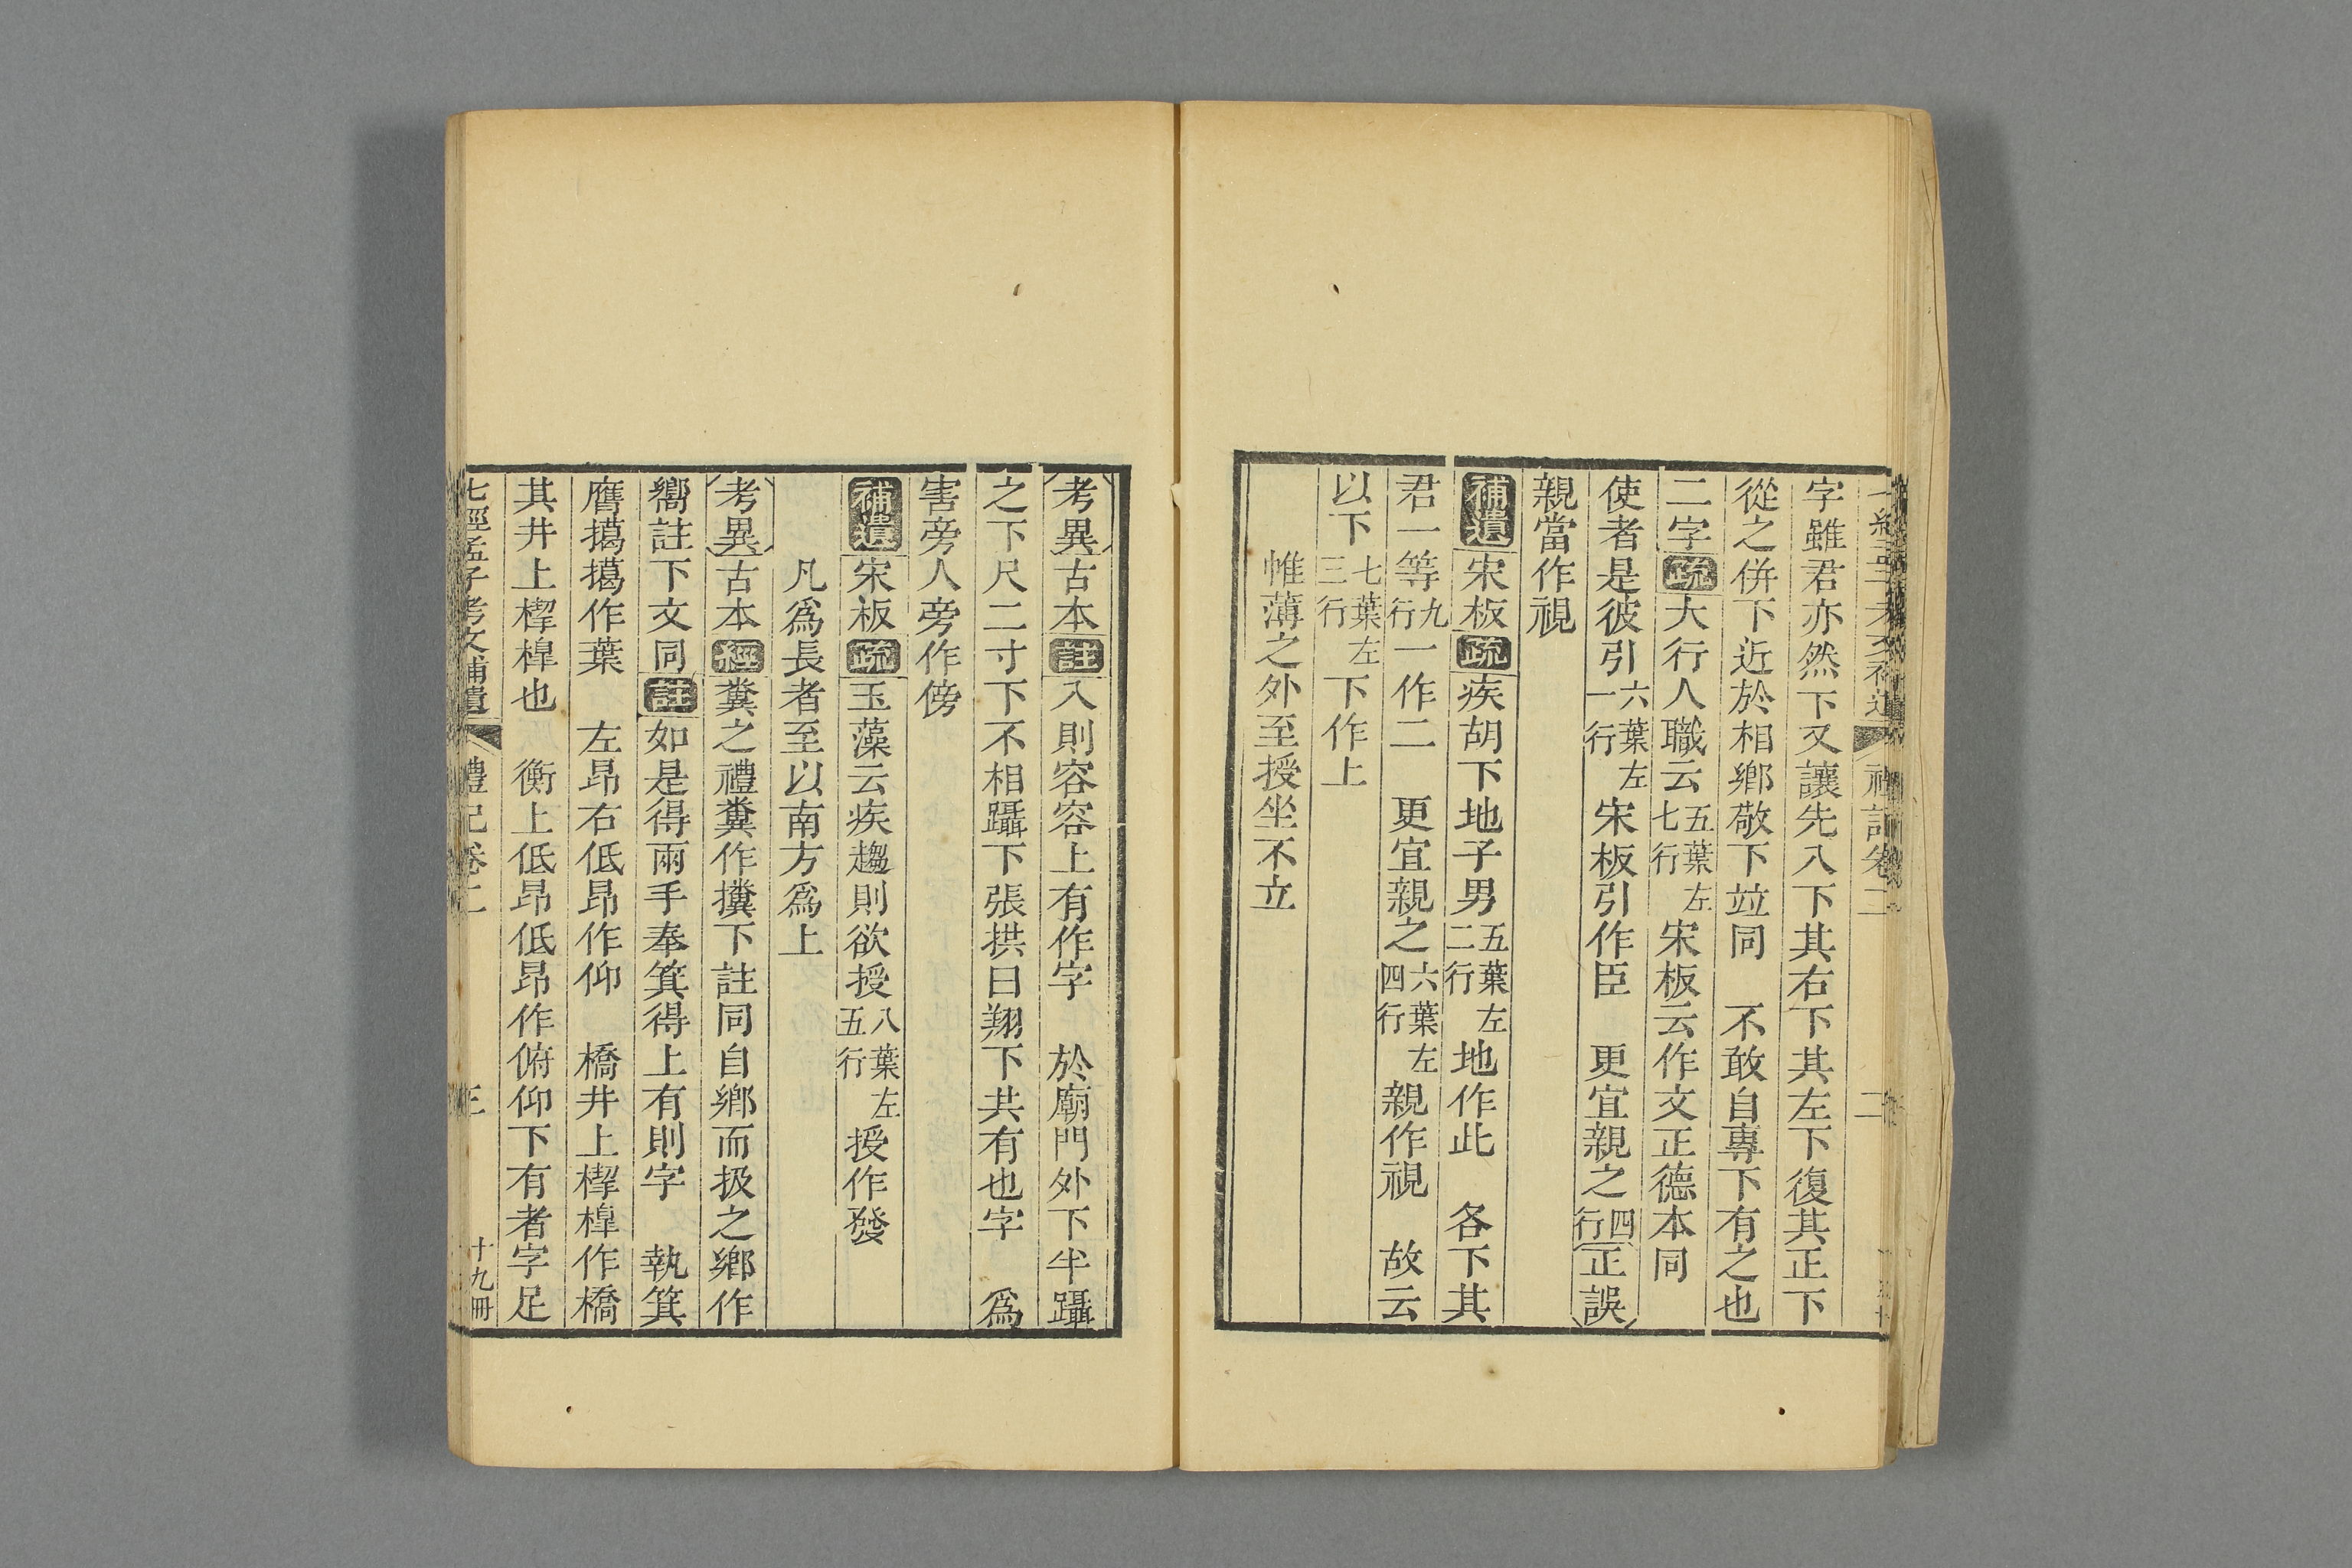 字雖君亦然下又讓先入下其右下其左下復其正下
從之併下近於相鄉敬下竝同　不敢自專下有之也
二字疏大行人職云五葉左七行宋板云作文正德本同
使者是彼引六葉左一行宋板引作臣　更宜親之四行正誤
親當作視
補遺宋板疏疾胡下地子男五葉左二行地作此　各下其
君一等九行一作二　更宜親之六葉左四行親作視　故云
以下七葉左三行下作上
帷薄之外至授坐不立
考異古本註入則容容上有作字　於廟門外下半躡
之下尺二寸下不相躡下張拱曰翔下共有也字　爲
害旁人旁作傍
補遺宋板疏玉藻云疾趨則欲授八葉左五行授作發
凡爲長者至以南方爲上
考異古本經糞之禮糞作攩下註同自鄉而扱之鄉作
嚮註下文同註如是得兩手奉箕得上有則字　執箕
膺擖擖作葉　左昂右低昂作仰　橋井上㮮橰作橋
其井上㮮橰也　衡上低昂低昂作俯仰下有者字足
七經孟子考文補遺　禮記卷二　三　十九冊